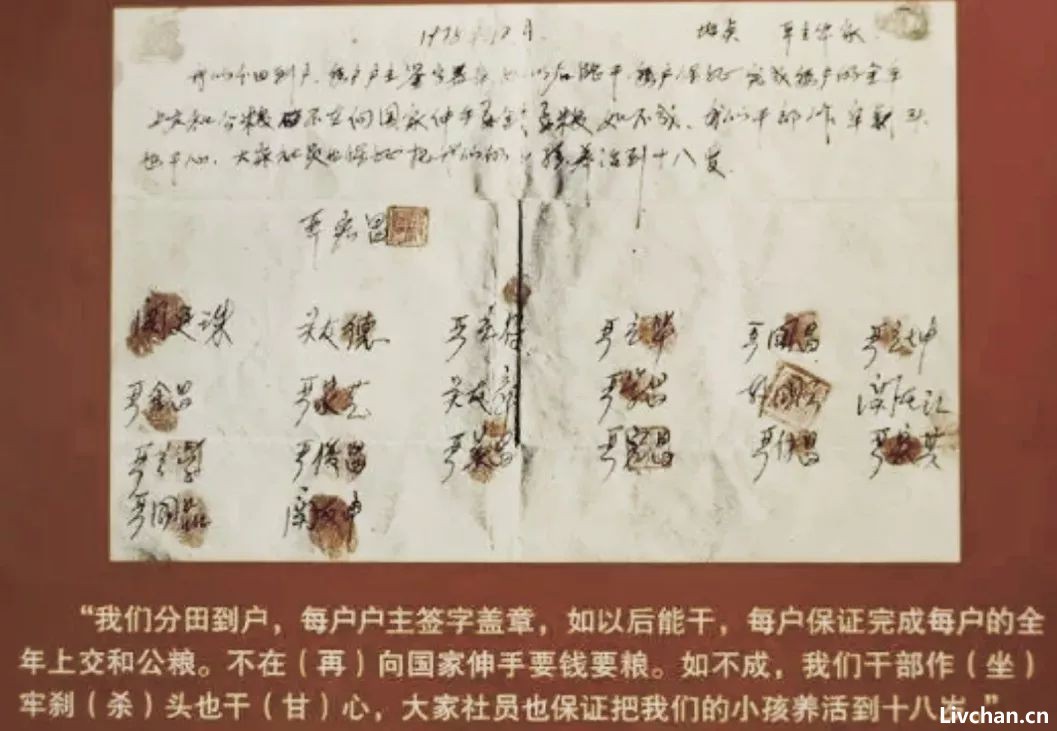 1978年12月. 地点 严立华家
我们分田到户，每户户主签字盖章，如以后能干，每户保证完成每户的全年
上交和公粮 不在向国家伸手要钱要粮 如不成，我们干部作牢刹头
也干心，大家社员也保证把我们的小孩养活到十八岁
严宏昌
关廷珠 关友德 严立符 严立华 严国昌 严立坤
严金昌 严家芝 关友章 严学昌 韩国云 关友江
严立学 严俊昌 严美昌 严宏昌 严付昌 严家其
严国品 关友申
“我们分田到户，每户户主签字盖章，如以后能干，每户保证完成每户的全
年上交和公粮。不在（再）向国家伸手要钱要粮。如不成，我们干部作（坐）
牢刹（杀）头也干（甘）心，大家社员也保证把我们的小孩养活到十八岁。”
Livchan.cn